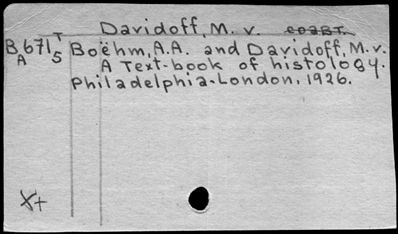 Davidoff, M. v.
B671T Boëhm, A.A. and Davidoff, M. v.
A 5 A Text-book of histology.
Philadelphia-London, 1926.